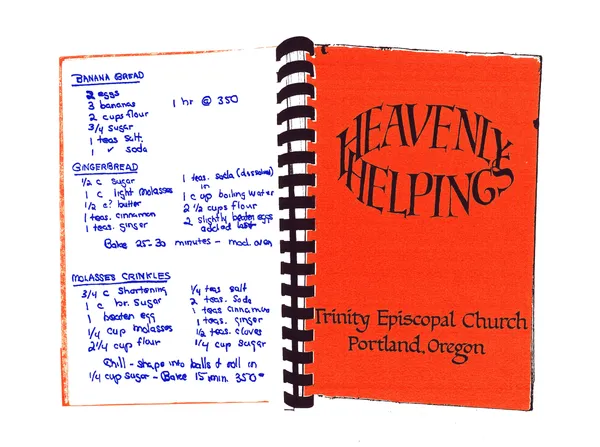 BANANA BREAD
2 eggs
3 bananas
1 hr @ 350
2 cups flour
3/4 sugar
1 teas salt
1 " soda
GINGERBREAD
1/2 c sugar
1 c light molasses
1/2 c? butter
1 teas. cinnamon
1 teas. ginger
1 teas. soda (dissolved)
in
1 cup boiling water
2 1/2 cups flour
2 slightly beaten eggs
added last
Bake 25-30 minutes - mod. oven
MOLASSES CRINKLES
3/4 c shortening
1 c br. sugar
1 beaten egg
1/4 cup molasses
2 1/4 cup flour
1/4 teas salt
2 teas. soda
1 teas cinnamon
1 teas. ginger
1/2 teas. cloves
1/4 cup sugar
Chill - shape into balls & roll in
1/4 cup sugar - Bake 15 min. 350°
HEAVENLY
HELPINGS
Trinity Episcopal Church
Portland, Oregon